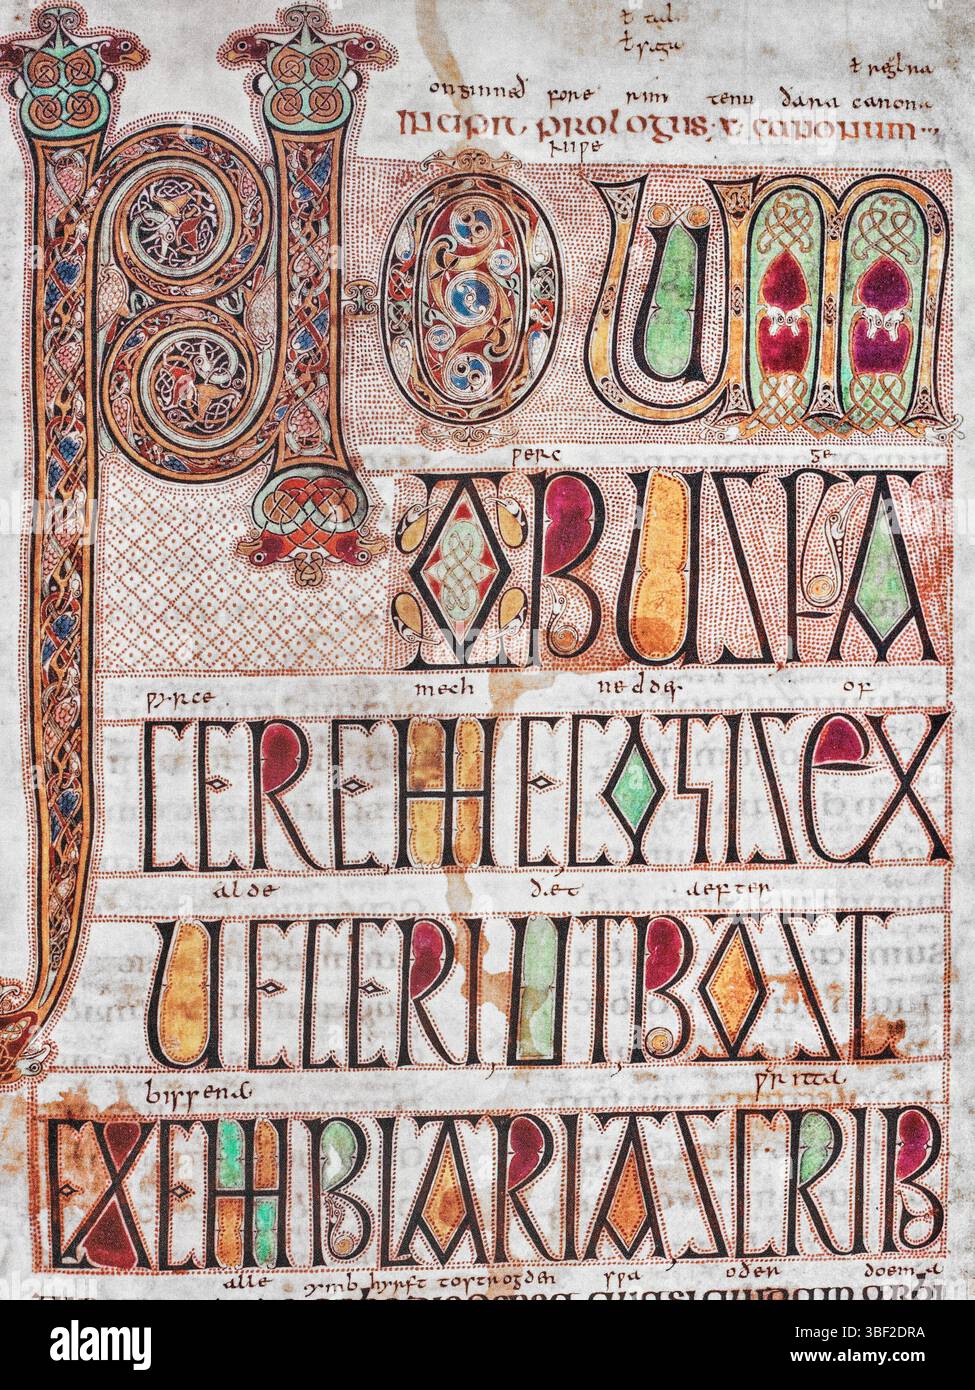 ł tal
onginneð fore rim tenu ðara canona
INCIPIT PROLOGUS X CANONUM
niƿe
NOUUM
ƿerc ge
OPUS FA
ƿyrce mech of
CERE ME COGIS EX
alde ðæt aefter
UETERE UT POST
bissena ƿritta
EXEMPLARIA SCRIB
alle ymb hyrft tostrogden sƿa oder doema
alamy
Image ID: 3BF2DRA
www.alamy.com